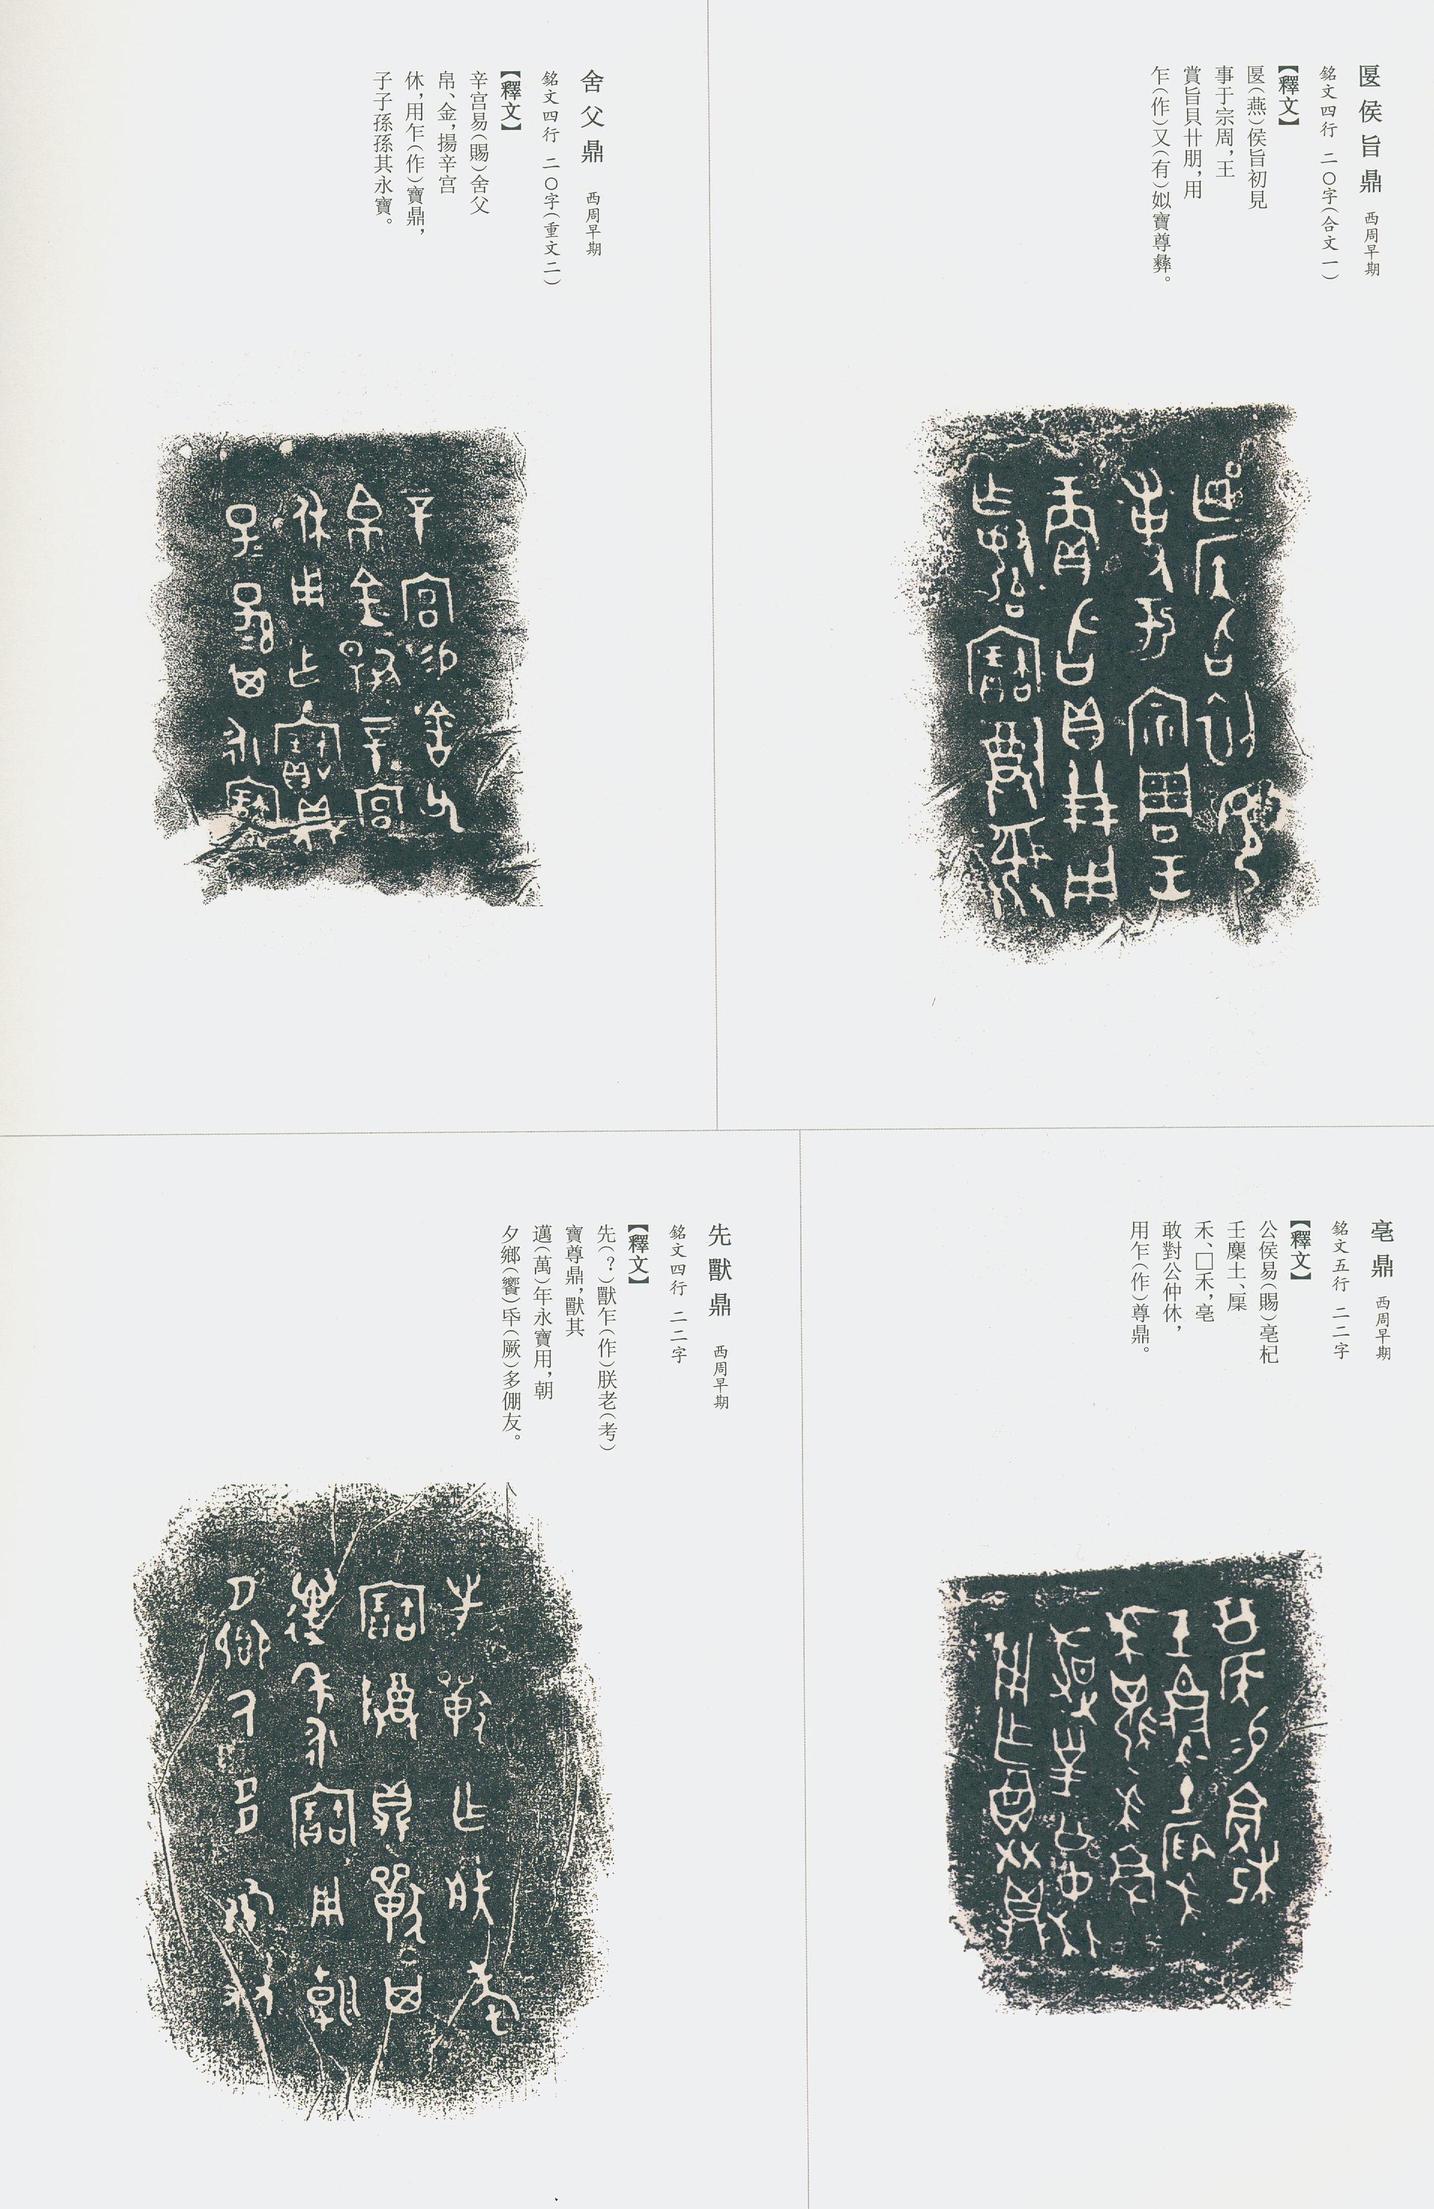 匽侯旨鼎 西周早期
銘文四行 二〇字（合文一）
【釋文】
匽（燕）侯旨初見
事于宗周，王
賞旨貝廿朋，用
乍（作）又（有）姒寶尊彝。
舍父鼎 西周早期
銘文四行 二〇字（重文二）
【釋文】
辛宫易（賜）舍父
帛、金，揚辛宫
休，用乍（作）寶鼎，
子子孫孫其永寶。
亳鼎 西周早期
銘文五行 二二字
【釋文】
公侯易（賜）亳杞
土、麇土、
禾、□禾，亳
敢對公仲休，
用乍（作）尊鼎。
先獸鼎 西周早期
銘文四行 二二字
【釋文】
先（？）獸乍（作）朕老（考）
寶尊鼎，獸其
邁（萬）年永寶用，朝
夕鄉（饗）氒（厥）多倗友。